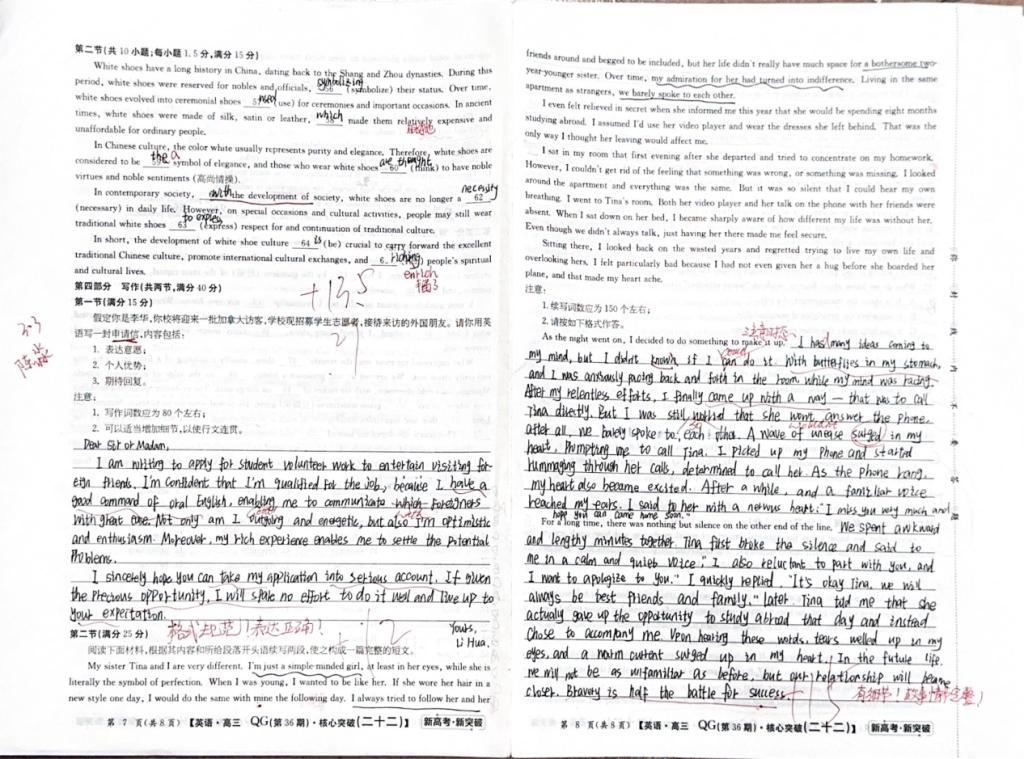 第二节(共 10 小题;每小题 1.5 分,满分 15 分)
White shoes have a long history in China, dating back to the Shang and Zhou dynasties. During this
symbolizing
period, white shoes were reserved for nobles and officials, 56 (symbolize) their status. Over time,
used
white shoes evolved into ceremonial shoes 57 (use) for ceremonies and important occasions. In ancient
which
times, white shoes were made of silk, satin or leather, 58 made them relatively expensive and
unaffordable for ordinary people.
In Chinese culture, the color white usually represents purity and elegance. Therefore, white shoes are
the a
are thought
considered to be 59 symbol of elegance, and those who wear white shoes 60 (think) to have noble
virtues and noble sentiments (高尚情操).
with
necessity
In contemporary society, the development of society, white shoes are no longer a 62
(necessary) in daily life. However, on special occasions and cultural activities, people may still wear
to express
traditional white shoes 63 (express) respect for and continuation of traditional culture.
is
In short, the development of white shoe culture 64 (be) crucial to carry forward the excellent
riching
traditional Chinese culture, promote international cultural exchanges, and people's spiritual
and cultural lives.
enrich
+13.5
第四部分 写作(共两节,满分 40 分)
第一节(满分 15 分)
假定你是李华,你校将迎来一批加拿大访客,学校现招募学生志愿者,接待来访的外国朋友。请你用英
语写一封申请信,内容包括:
1. 表达意愿;
2. 个人优势;
3. 期待回复。
注意:
1. 写作词数应为 80 个左右;
2. 可以适当增加细节,以使行文连贯。
Dear Sir or Madam,
I am writing to apply for student volunteer work to entertain visiting for-
eign friends. I'm confident that I'm qualified for the job, because I have a
good command of oral English, enabling me to communicate which foreigners
with great ease. Not only am I outgoing and energetic, but also I'm optimistic
and enthusiasm. Moreover, my rich experience enables me to settle the potential
problems.
I sincerely hope you can take my application into serious account. If given
the precious opportunity, I will spare no effort to do it well and live up to
your expectation.
Yours,
Li Hua.
格式规范!表达正确!
+12
第二节(满分 25 分)
阅读下面材料,根据其内容和所给段落开头语续写两段,使之构成一篇完整的短文。
My sister Tina and I are very different. I'm just a simple-minded girl, at least in her eyes, while she is
literally the symbol of perfection. When I was young, I wanted to be like her. If she wore her hair in a
new style one day, I would do the same with mine the following day. I always tried to follow her and her
第 7 页(共 8 页) 【英语·高三 QG(第 36 期)·核心突破(二十二)】 新高考·新突破
friends around and begged to be included, but her life didn't really have much space for a bothersome two-
year-younger sister. Over time, my admiration for her had turned into indifference. Living in the same
apartment as strangers, we barely spoke to each other.
I even felt relieved in secret when she informed me this year that she would be spending eight months
studying abroad. I assumed I'd use her video player and wear the dresses she left behind. That was the
only way I thought her leaving would affect me.
I sat in my room that first evening after she departed and tried to concentrate on my homework.
However, I couldn't get rid of the feeling that something was wrong, or something was missing. I looked
around the apartment and everything was the same. But it was so silent that I could hear my own
breathing. I went to Tina's room. Both her video player and her talk on the phone with her friends were
absent. When I sat down on her bed, I became sharply aware of how different my life was without her.
Even though we didn't always talk, just having her there made me feel secure.
Sitting there, I looked back on the wasted years and regretted trying to live my own life and
overlooking hers. I felt particularly bad because I had not even given her a hug before she boarded her
plane, and that made my heart ache.
注意:
1. 续写词数应为 150 个左右;
2. 请按如下格式作答。
注意时态
As the night went on, I decided to do something to make it up. I has many ideas coming to
my mind, but I didn't known if I can do it. With butterflies in my stomach,
and I was anxiously pacing back and forth in the room while my mind was racing.
After my relentless efforts, I finally came up with a way — that was to call
Tina directly. But I was still worried that she won't answer the phone.
after all, we barely spoke to each other. A wave of unease surged in my
heart, prompting me to call Tina. I picked up my phone and started
rummaging through her calls, determined to call her. As the phone rang,
my heart also became excited. After a while, and a familiar voice
reached my ears. I said to her with a nervous heart: "I miss you very much and
hope you can come home soon."
For a long time, there was nothing but silence on the other end of the line. We spent awkward
and lengthy minutes together. Tina first broke the silence and said to
me in a calm and quiet voice, "I also reluctant to part with you, and
I want to apologize to you." I quickly replied. "It's okay Tina, we will
always be best friends and family." Later, Tina told me that she
actually gave up the opportunity to study abroad that day and instead
chose to accompany me. Upon hearing these words, tears welled up in my
eyes, and a warm current surged up in my heart. In the future life,
we will not be as unfamiliar as before, but our relationship will became
closer. Bravery is half the battle for success.
第 8 页(共 8 页) 【英语·高三 QG(第 36 期)·核心突破(二十二)】 新高考·新突破